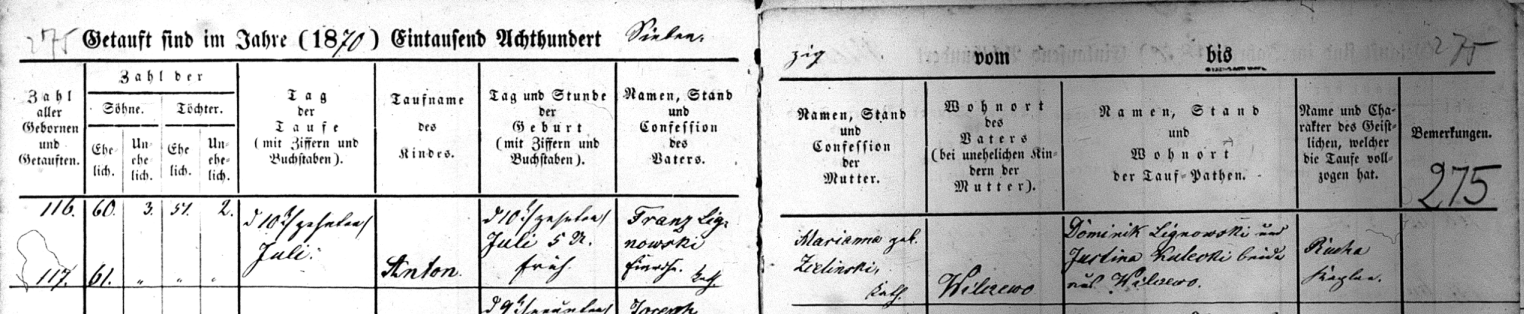 275 Getauft sind im Jahre (1870) Eintausend Achthundert Sieben-
zig vom bis 275
Zahl aller Gebornen und Getauften.
Zahl der
Söhne. Töchter.
Ehe lich. Un ehe lich. Ehe lich. Un ehe= lich.
Tag der Taufe (mit Ziffern und Buchstaben).
Taufname des Kindes.
Tag und Stunde der Geburt (mit Ziffern und Buchstaben).
Namen, Stand und Confession des Vaters.
Namen, Stand und Confession der Mutter.
Wohnort des Vaters (bei unehelichen Kin= dern der Mutter).
Namen, Stand und Wohnort der Tauf=Pathen.
Name und Cha= rakter des Geist= lichen, welcher die Taufe voll= zogen hat.
Bemerkungen.
275
116. 60. 3. 51. 2.
117. 61. " " "
d 10t/zehnten/
Juli.
Anton.
d 10t/zehnten/
Juli 5 U.
früh.
Franz Lig=
nowski
kath.
Marianna geb.
Zielinski,
kath.
Wilczewo
Dominik Lignowski und
Justina Kulecki beide
aus Wilczewo.
d 9t/neunten/
Joseph